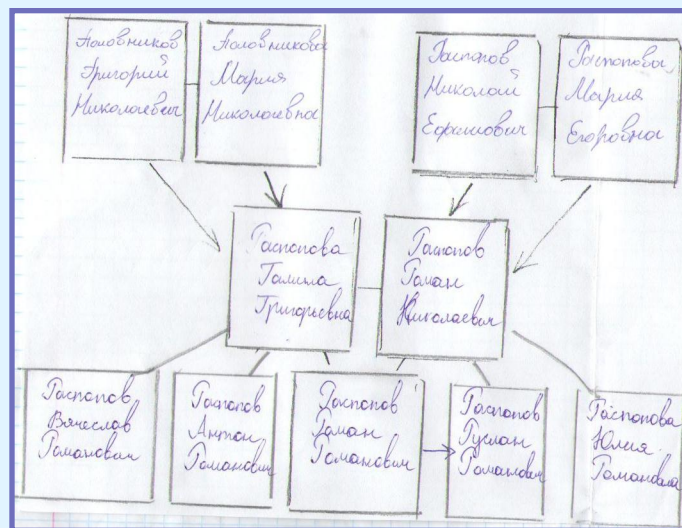 Половников
Григорий
Николаевич
Половникова
Мария
Николаевна
Распопов
Николай
Ефимович
Распопова
Мария
Егоровна
Распопова
Галина
Григорьевна
Распопов
Роман
Николаевич
Распопов
Вячеслав
Романович
Распопов
Антон
Романович
Распопов
Роман
Романович
Распопов
Руслан
Романович
Распопова
Юлия
Романовна